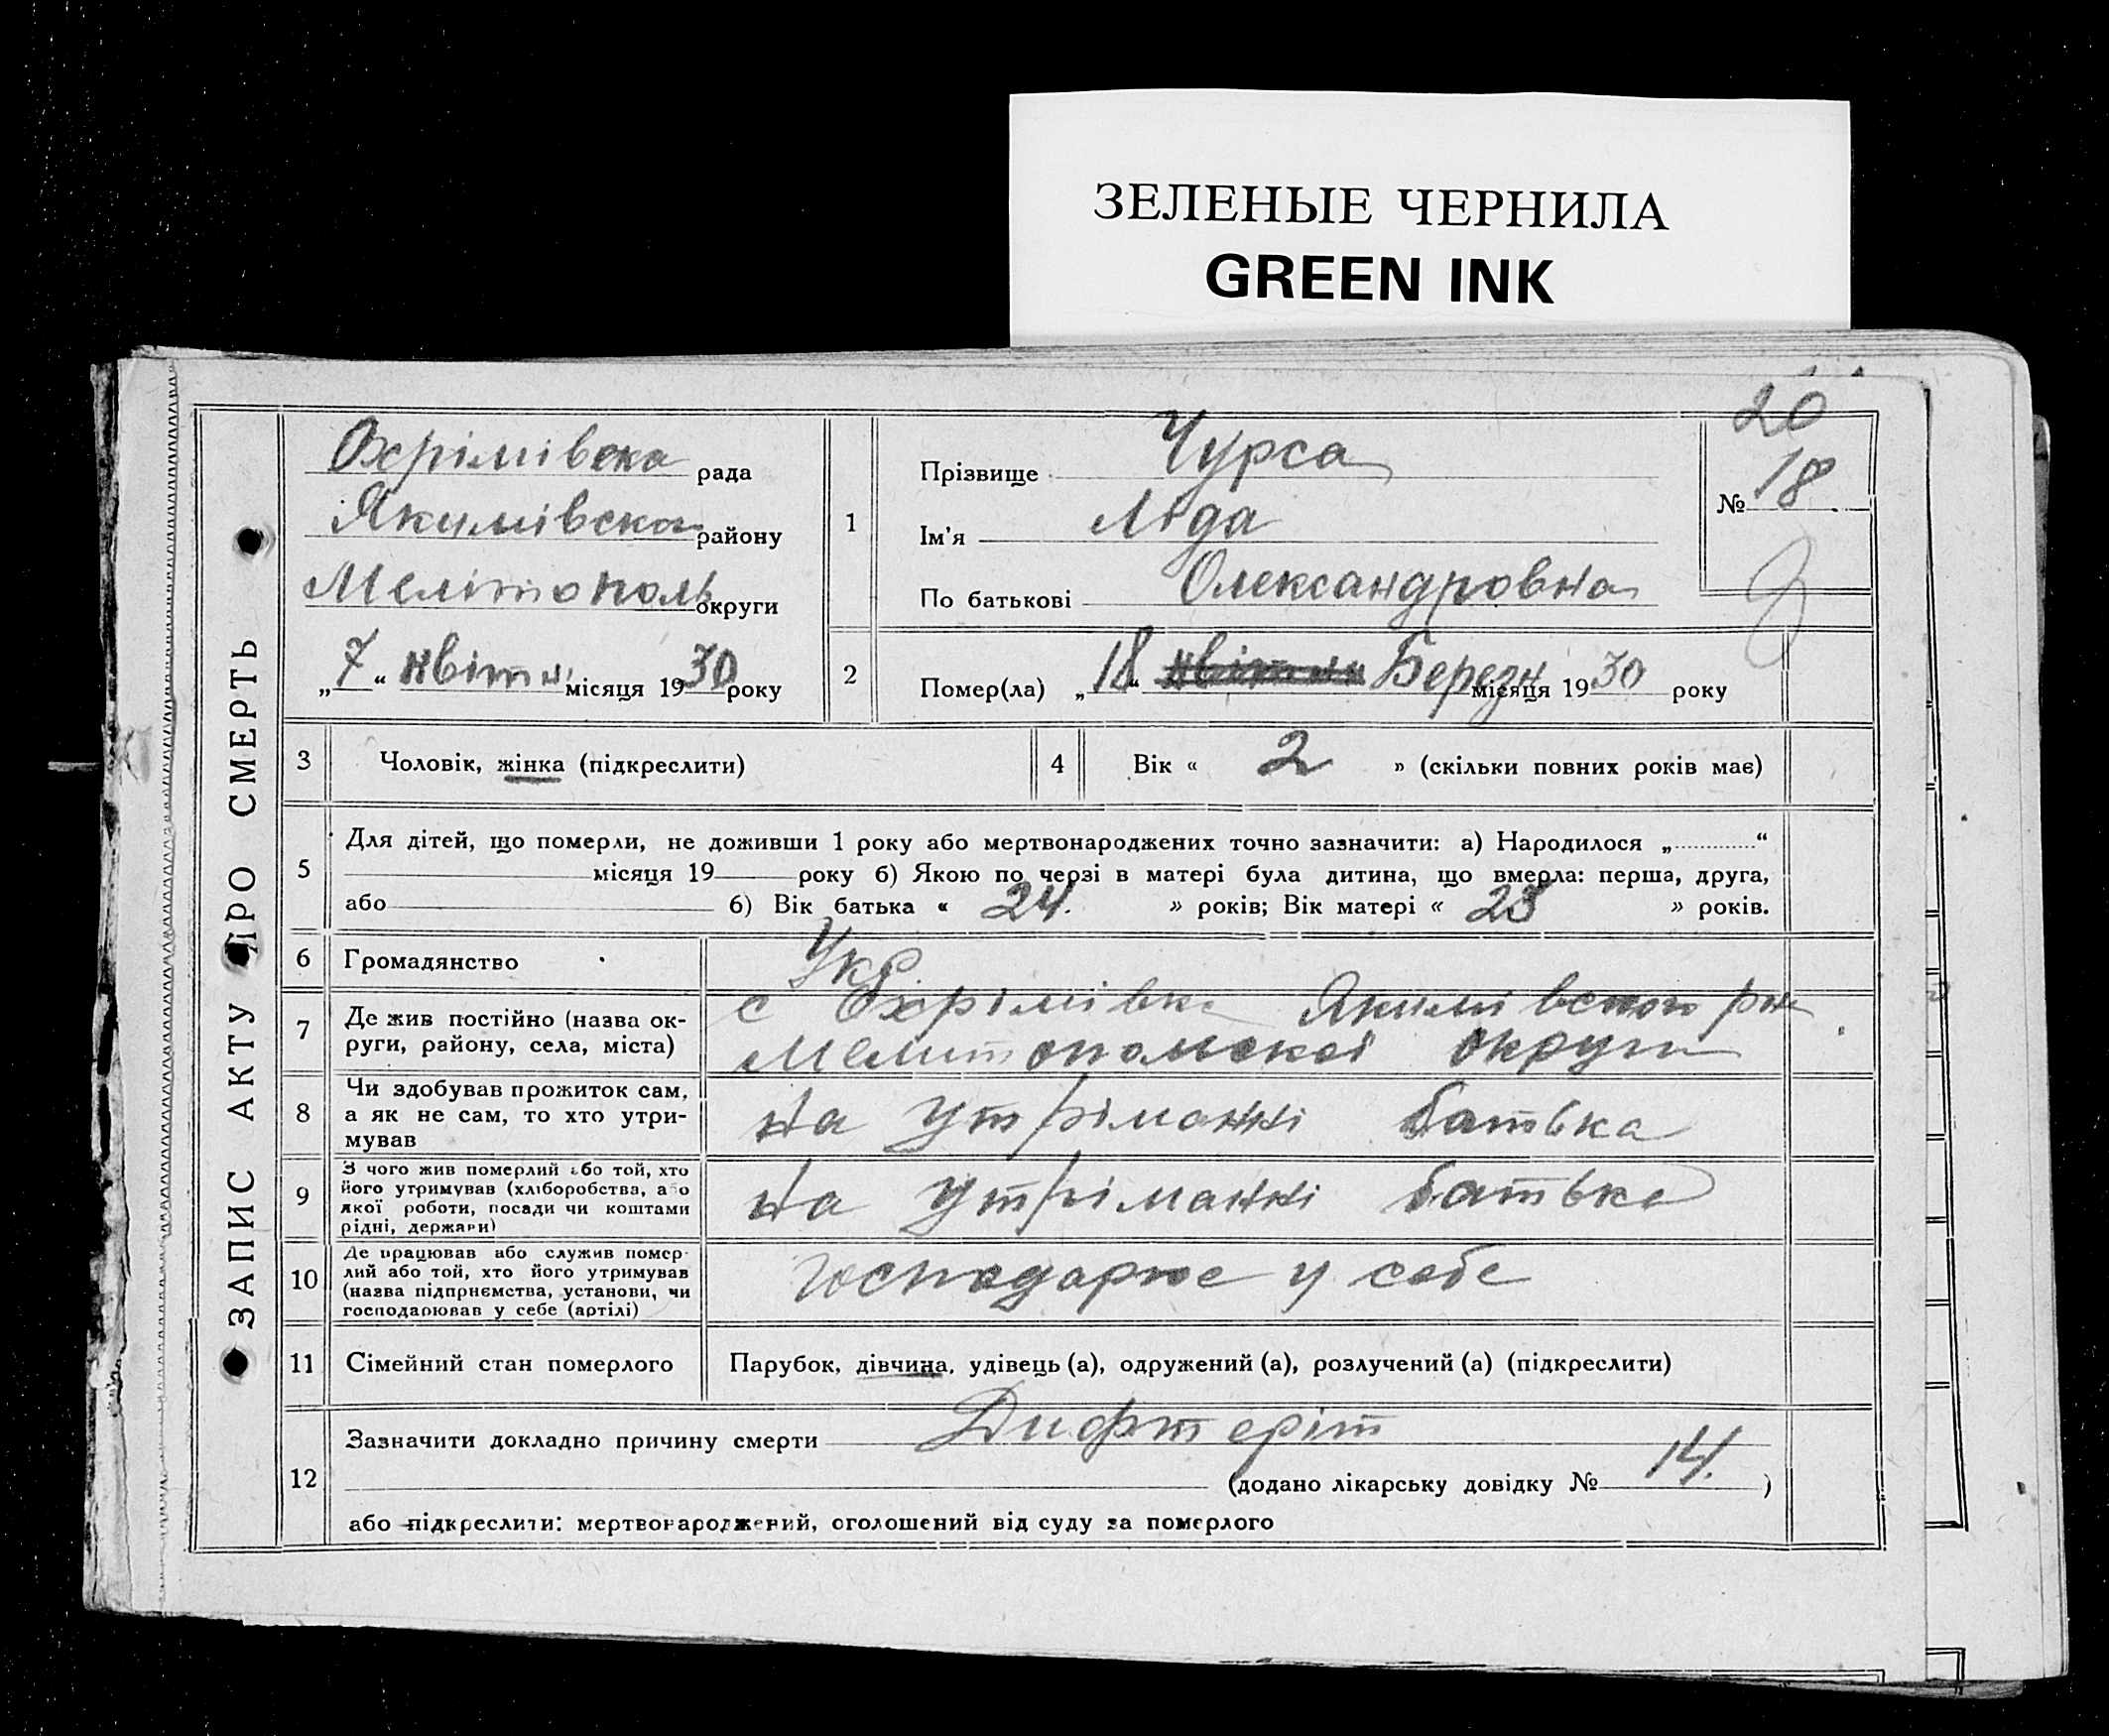 ЗЕЛЕНЫЕ ЧЕРНИЛА
GREEN INK
20
ЗАПИС АКТУ ПРО СМЕРТЬ
Охрімівска рада
Якимівскаго району
Мелітополь округи
„7“ квітня місяця 1930 року
1
Прізвище Чурса
Ім'я Ліда
По батькові Олександровна
№ 18
2
Помер(ла) „18“ квітня Березн місяця 1930 року
3
Чоловік, жінка (підкреслити)
4
Вік « 2 » (скільки повних років має)
5
Для дітей, що померли, не доживши 1 року або мертвонароджених точно зазначити: а) Народилося „ “
місяця 19 року б) Якою по черзі в матері була дитина, що вмерла: перша, друга,
або б) Вік батька « 24. » років; Вік матері « 23 » років.
6
Громадянство
Укр
7
Де жив постійно (назва ок-
руги, району, села, міста)
с Охрімівка Якимівского рн
Мелитопольскої округи
8
Чи здобував прожиток сам,
а як не сам, то хто утри-
мував
На утріманні батька
9
З чого жив померлий або той, хто
його утримував (хліборобства, або
якої роботи, посади чи коштами
рідні, держави)
На утріманні батька
10
Де працював або служив помер-
лий або той, хто його утримував
(назва підприємства, установи, чи
господарював у себе (артілі)
Господарює у себе
11
Сімейний стан померлого
Парубок, дівчина, удівець (а), одружений (а), розлучений (а) (підкреслити)
12
Зазначити докладно причину смерти Дифтеріт
(додано лікарську довідку № 14. )
або підкреслити: мертвонароджений, оголошений від суду за померлого